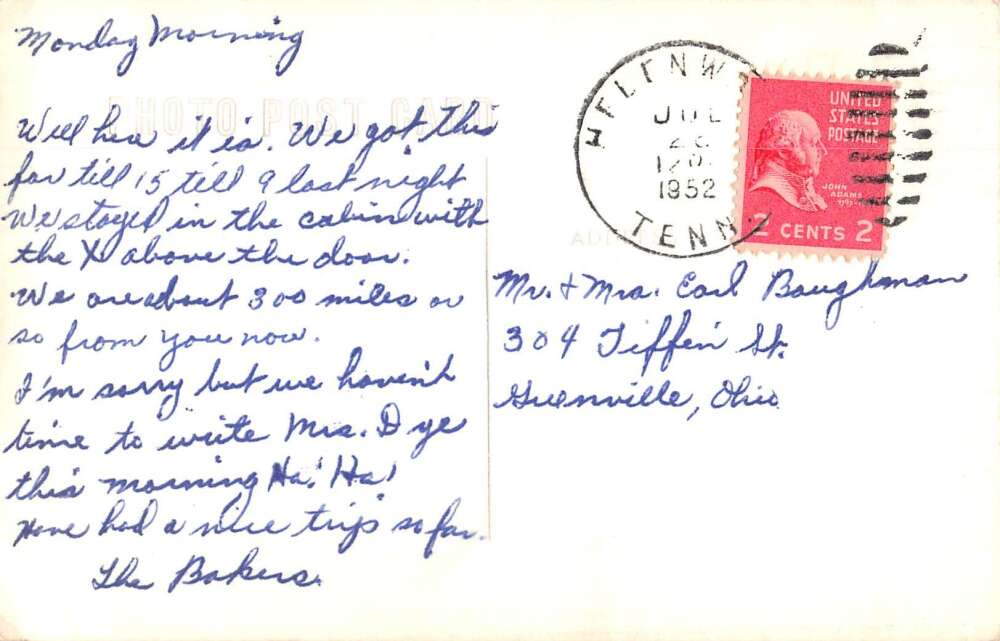 Monday Morning
PHOTO POST CARD
Well here it is. We got this
far till 15 till 9 last night
We stayed in the cabin with
the X above the door.
We are about 300 miles or
so from you now.
I'm sorry but we haven't
time to write Mrs. Dye
this morning Ha! Ha!
Have had a nice trip so far.
The Bakers.
HELENW
JUL
28
1952
TENN.
UNITED
STATES
POSTAGE
JOHN
ADAMS
2 CENTS 2
Mr. + Mrs. Carl Baughman
304 Tiffin St.
Greenville, Ohio